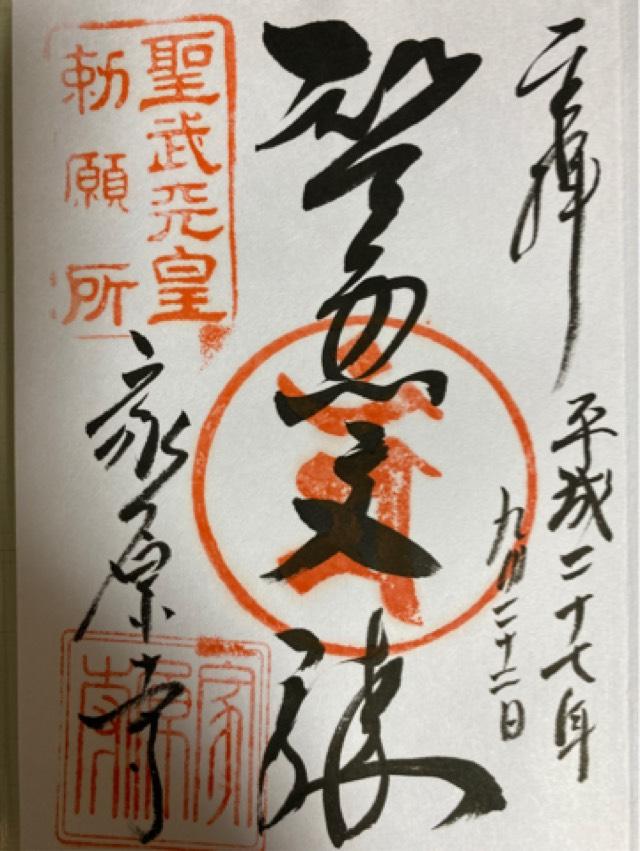 奉拝
平成二十七年
九月二十二日
智恵文殊
聖武天皇
勅願所
家原寺
家原寺